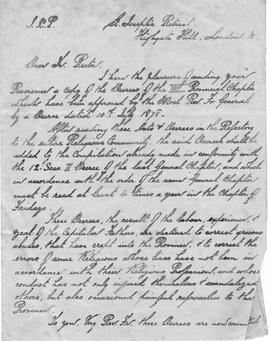 J.X.P. St. Joseph's Retreat.
Highgate Hill, London N.
Dear Fr. Rector.
I have the pleasure of sending your
Reverence a copy of the Decrees of the Provincial Chapter
which have been approved by the Most Revd. Fr. General
by a decree dated 10th July 1875.
After reading these Acts & Decrees in the Refectory
to the entire Religious Community, the said Decrees shall be
added to the Compilation already made in conformity with
the 12. Decree of the last General Chapter, and which
in accordance with the order of the same General Chapter
must be read at least times a year in the Chapter of
Fridays.
These Decrees, the result of the labour, experience &
zeal of the Capitular Fathers, are destined to correct grievous
abuses, that have crept into the Province, & to correct the
errors of some Religious whose lives have not been in
accordance with their Religious Profession, and whose
conduct has not only injured themselves & scandalized
others, but also occasioned harmful reproaches to the
Province.
To you, Very Rev. Fr. these Decrees are now committed